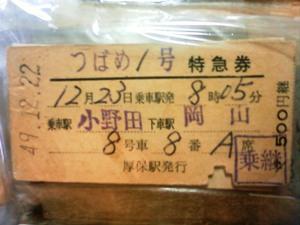 つばめ1号 特急券
12月23日乗車駅発8時05分
乗車駅 小野田 下車駅 岡山
8号車 8番 A席
厚保駅発行
乗継
49.12.22
500円継